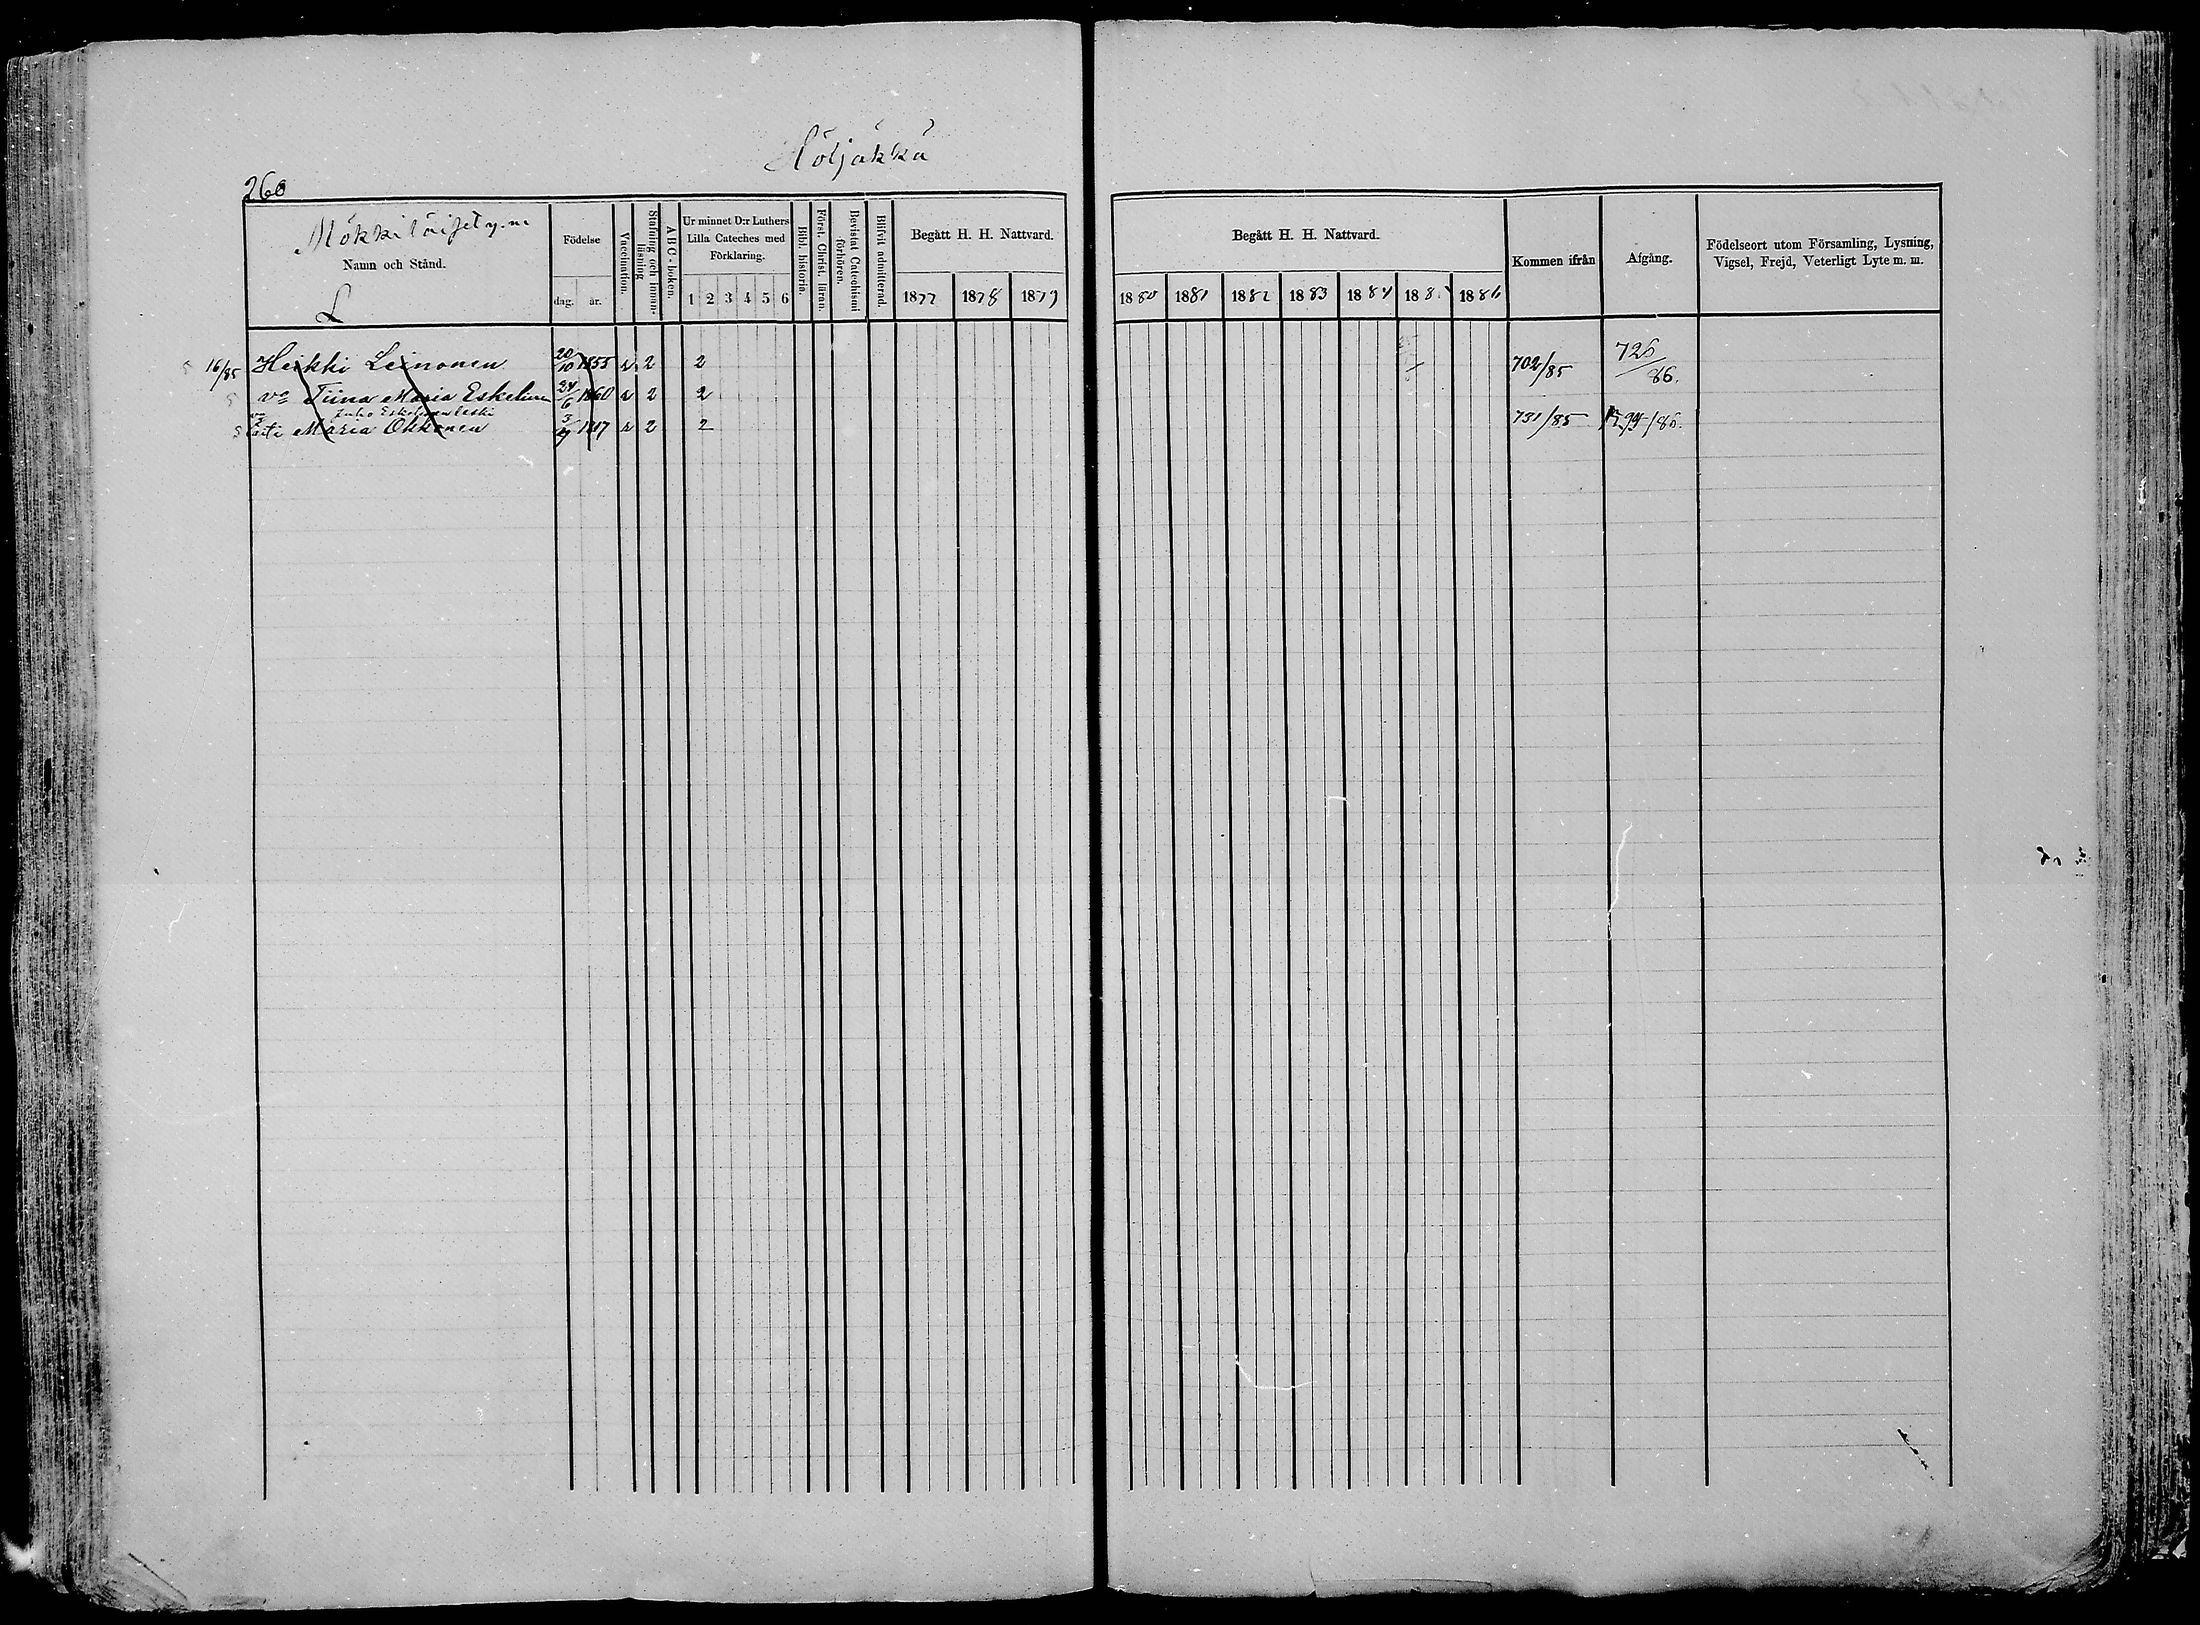 Höljäkkä
260
Mökkiläiset y.m.
Namn och Stånd.
L
Födelse
dag. år.
Vaccination.
Stafning och innan-läsning
ABC-boken.
Ur minnet D:r Luthers Lilla Cateches med Förklaring.
1 2 3 4 5 6
Bibl. historia.
Först. Christ. läran.
Bevistat Catechismi förhören.
Blifvit admitterad.
Begått H. H. Nattvard.
1877 1878 1879
Begått H. H. Nattvard.
1880 1881 1882 1883 1884 1885 1886
Kommen ifrån
Afgång.
Födelseort utom Församling, Lysning, Vigsel, Frejd, Veterligt Lyte m. m.
16/85 Heikki Leinonen 20/10 1855 2 2 702/85 726/86.
vo Tiina Maria Eskelinen 24/6 1860 2 2
Juho Eskelisen leski
Maria Okkonen 2 2 731/85